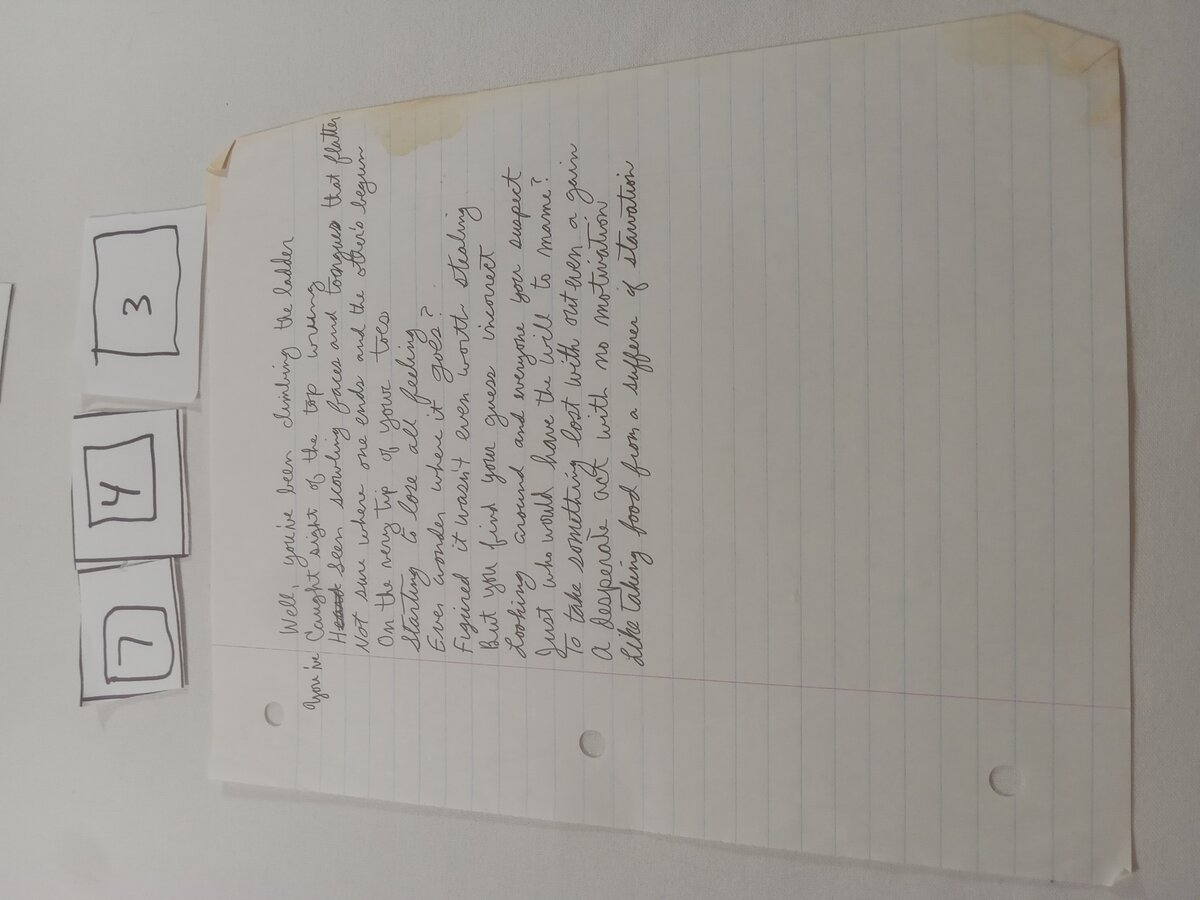 7 4 3
Well, you've been climbing the ladder
You've Caught sight of the top wrung
Heard seen scowling faces and toongues that flatter
Not sure where one ends and the other's begun
On the very tip of your toes
Starting to lose all feeling
Ever wonder where it goes?
Figured it wasn't even worth stealing
But you find your guess incorrect
Looking around and everyone you suspect
Just who would have the will to mame?
To take something lost with out even a gain
A desperate act with no motivation
Like taking food from a sufferer of starvation